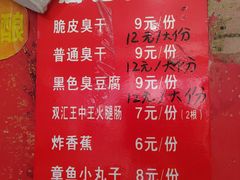 酿
脆皮臭干 9元/份
12元/大份
普通臭干 9元/份
12元/大份
黑色臭豆腐 9元/份
12元/大份
双汇王中王火腿肠 7元/份(2根)
炸香蕉 6元/份
章鱼小丸子 8元/份